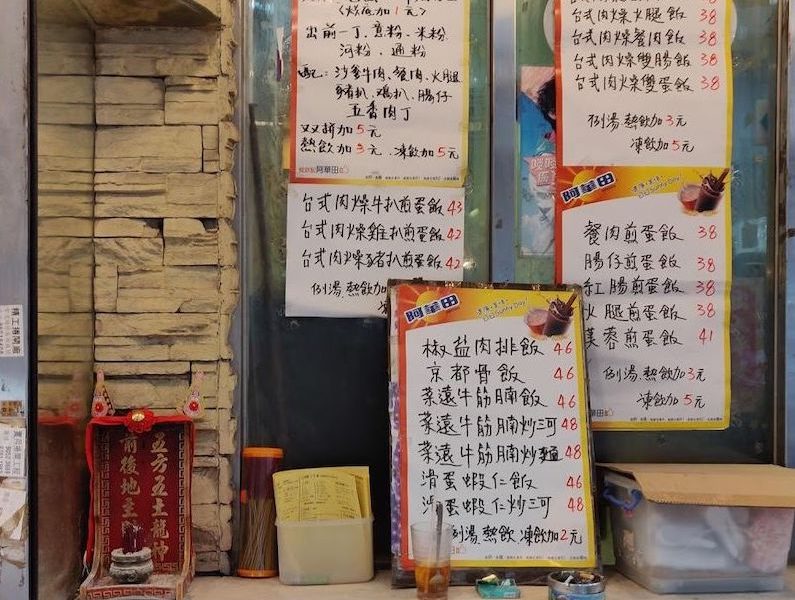 (炒底加1元)
出前一丁、意粉、米粉
河粉、通粉
配：沙爹牛肉、餐肉、火腿
豬扒、鷄扒、腸仔
五香肉丁
双拼加5元
熱飲加3元、凍飲加5元
阿華田
台式肉燥牛扒煎蛋飯 43
台式肉燥雞扒煎蛋飯 42
台式肉燥豬扒煎蛋飯 42
例湯、熱飲加
台式肉燥火腿飯 38
台式肉燥餐肉飯 38
台式肉燥雙腸飯 38
台式肉燥雙蛋飯 38
例湯、熱飲加3元
凍飲加5元
阿華田
餐肉煎蛋飯 38
腸仔煎蛋飯 38
紅腸煎蛋飯 38
火腿煎蛋飯 38
芙蓉煎蛋飯 41
例湯、熱飲加3元
凍飲加5元
阿華田
椒盐肉排飯 46
京都骨飯 46
菜遠牛筋腩飯 46
菜遠牛筋腩炒河 48
菜遠牛筋腩炒麵 48
滑蛋蝦仁飯 46
滑蛋蝦仁炒河 48
例湯、熱飲、凍飲加2元
五方五土龍神
前後地主